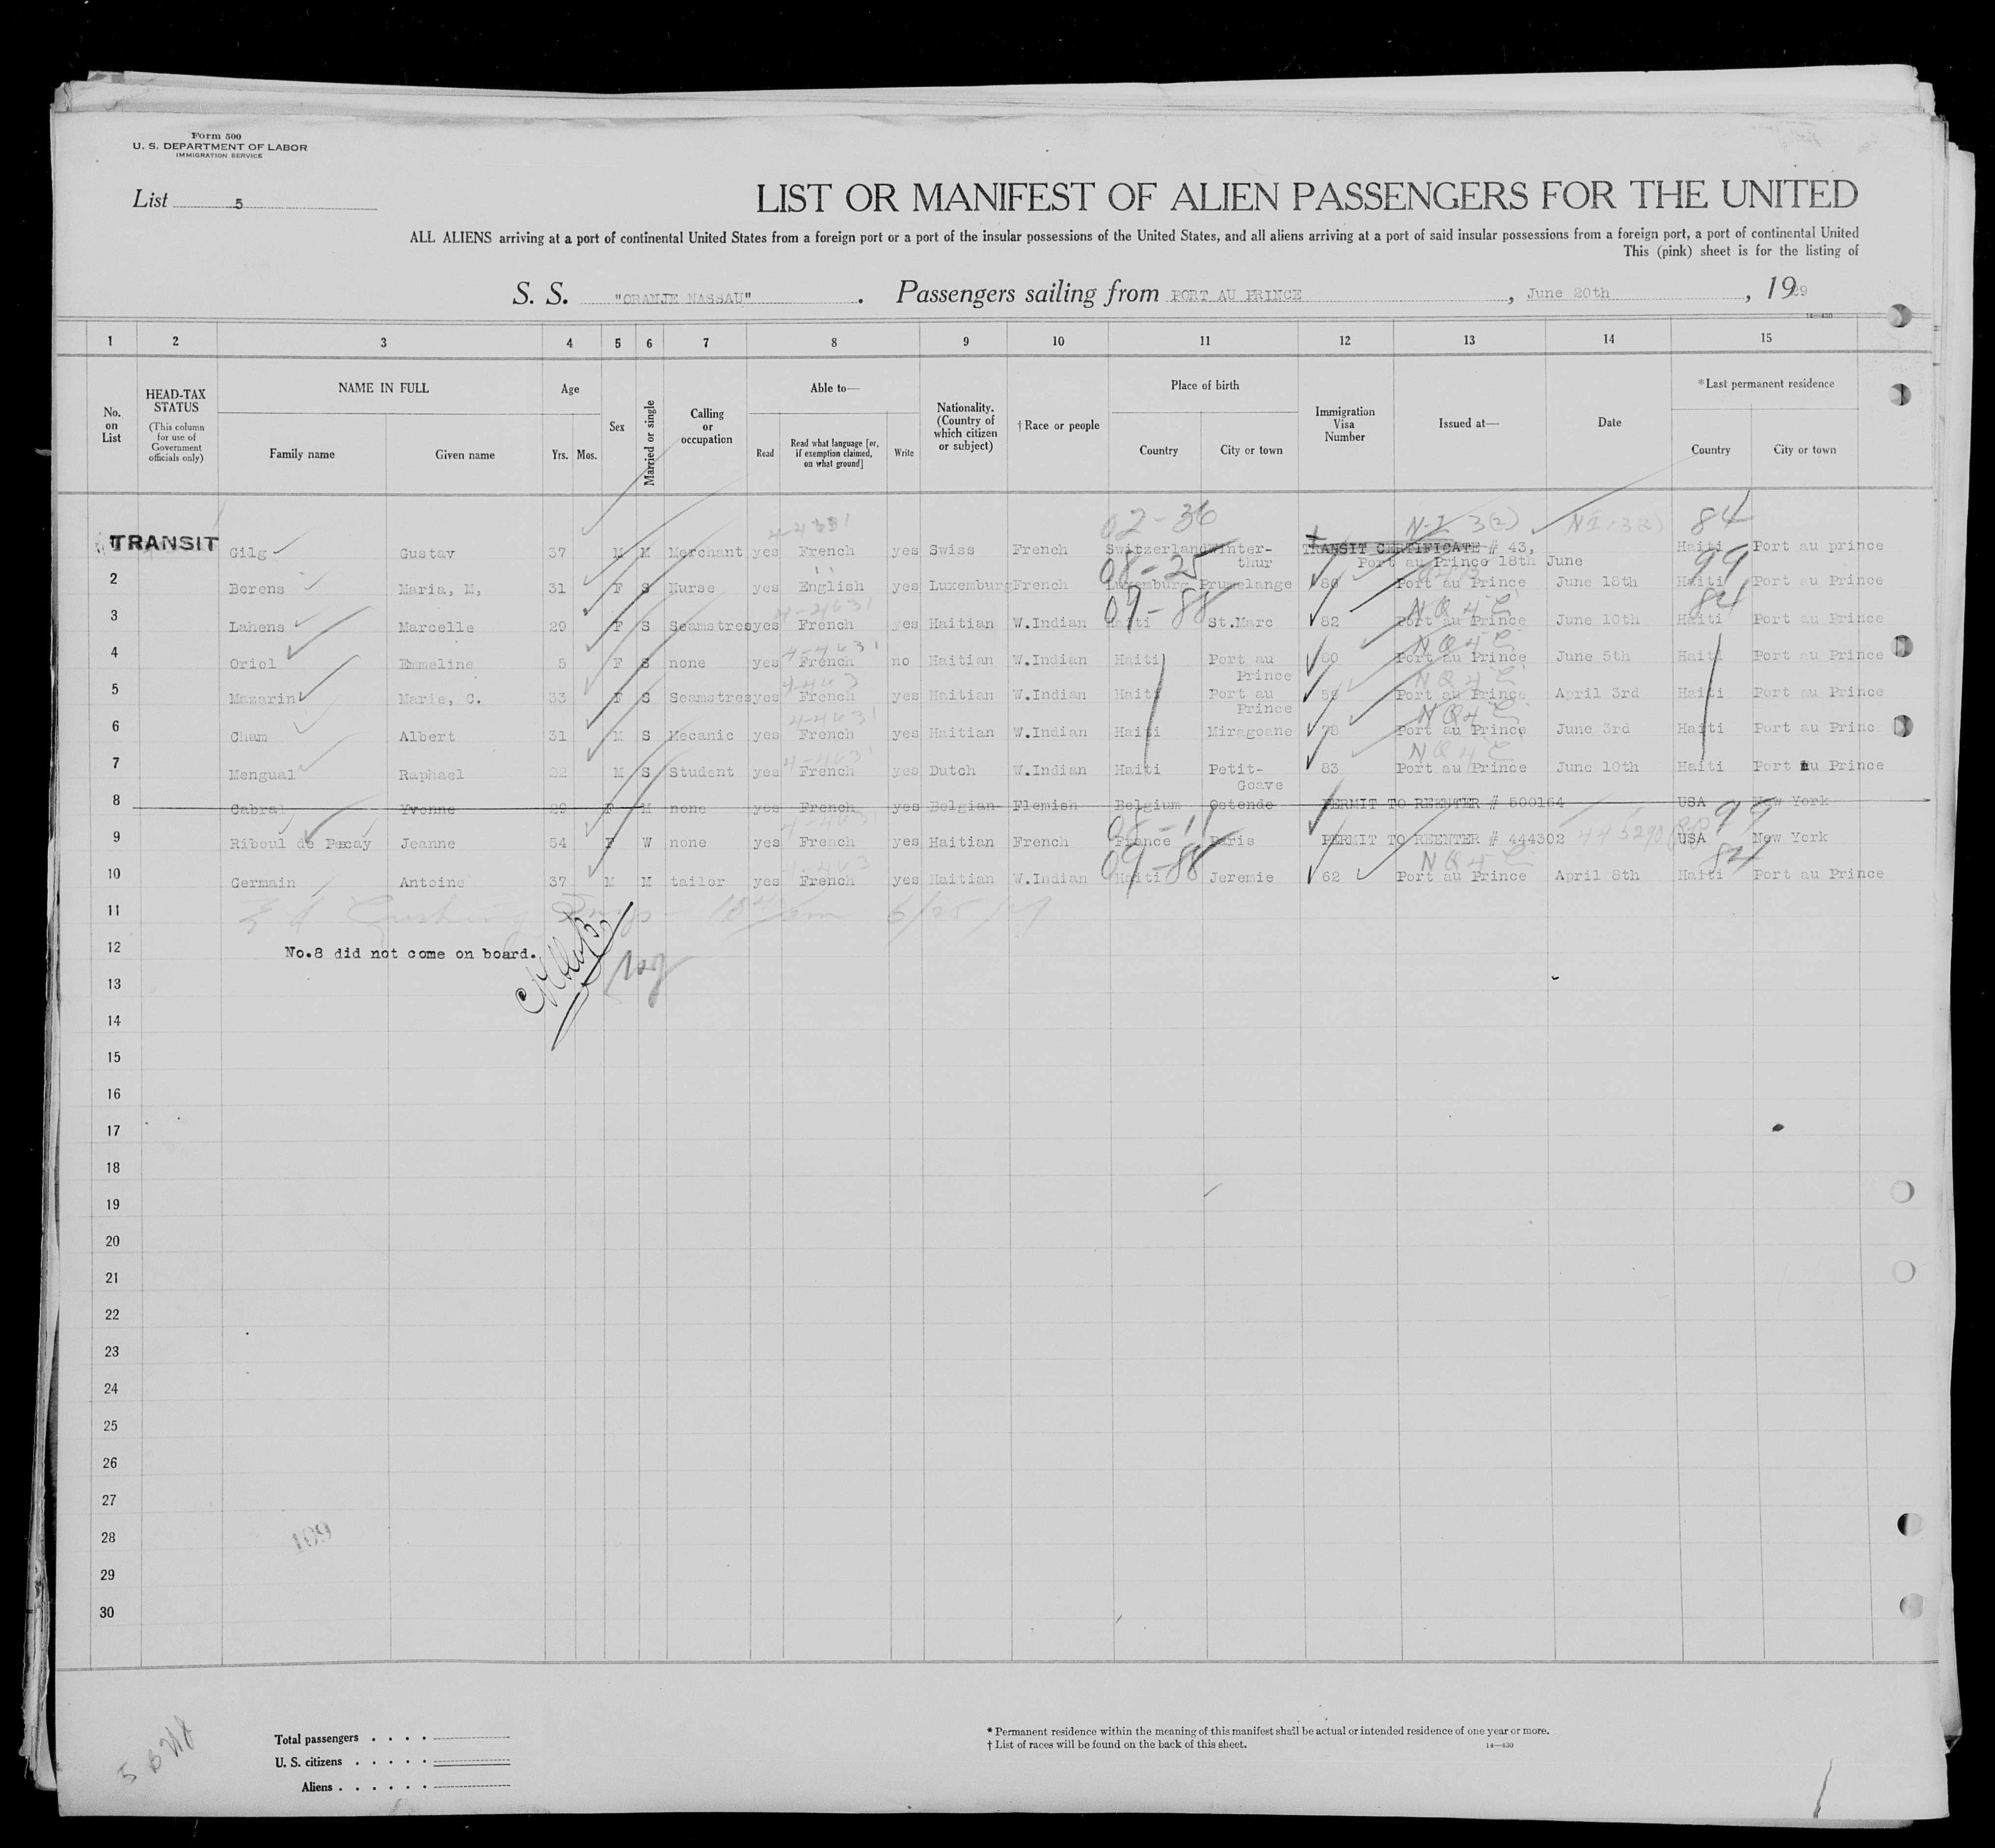 Form 500
U. S. DEPARTMENT OF LABOR
IMMIGRATION SERVICE
List 5
LIST OR MANIFEST OF ALIEN PASSENGERS FOR THE UNITED
ALL ALIENS arriving at a port of continental United States from a foreign port or a port of the insular possessions of the United States, and all aliens arriving at a port of said insular possessions from a foreign port, a port of continental United
This (pink) sheet is for the listing of
S. S. "ORANJE NASSAU" . Passengers sailing from PORT AU PRINCE , June 20th , 1929
14—430
1 2 3 4 5 6 7 8 9 10 11 12 13 14 15
No. on List
HEAD-TAX STATUS (This column for use of Government officials only)
NAME IN FULL
Family name Given name
Age
Yrs. Mos.
Sex
Married or single
Calling or occupation
Able to—
Read Read what language [or, if exemption claimed, on what ground] Write
Nationality. (Country of which citizen or subject)
† Race or people
Place of birth
Country City or town
Immigration Visa Number
Issued at—
Date
* Last permanent residence
Country City or town
02-36 N-I 3(2) 84
TRANSIT Gilg Gustav 37 M M Merchant yes French yes Swiss French Switzerland Winter- TRANSIT CERTIFICATE # 43, Haiti Port au prince
thur Port au Prince 18th June
08-25 99
2 Berens Maria, M, 31 F S Nurse yes English yes Luxemburg French Luxemburg Prumelange Port au Prince June 18th Haiti Port au Prince
09-88 NQ4C 84
3 Lahens Marcelle 29 F S Seamstres yes French yes Haitian W.Indian Haiti St.Marc 82 Port au Prince June 10th Haiti Port au Prince
4-4631 NQ4C
4 Oriol Emmeline 5 F S none yes French no Haitian W.Indian Haiti Port au 80 Port au Prince June 5th Haiti Port au Prince
Prince
4-463 NQ4C
5 Mazarin Marie, C. 33 F S Seamstres yes French yes Haitian W.Indian Haiti Port au 59 Port au Prince April 3rd Haiti Port au Prince
Prince
4-4631 NQ4C
6 Cham Albert 31 M S Mecanic yes French yes Haitian W.Indian Haiti Miragoane 78 Port au Prince June 3rd Haiti Port au Princ
4-4631 NQ4C
7 Mengual Raphael 22 M S Student yes French yes Dutch W.Indian Haiti Petit- 83 Port au Prince June 10th Haiti Port au Prince
Goave
8 Cabral Yvonne 29 F M none yes French yes Belgian Flemish Belgium Ostende PERMIT TO REENTER # 500164 USA New York
99
9 Riboul de Pescay Jeanne 54 F W none yes French yes Haitian French France Paris PERMIT TO REENTER # 444302 USA New York
09-88 NQ4C 84
10 Germain Antoine 37 M M tailor yes French yes Haitian W.Indian Haiti Jeremie 62 Port au Prince April 8th Haiti Port au Prince
11 6/25/29
12 No.8 did not come on board.
13
14
15
16
17
18
19
20
21
22
23
24
25
26
27
28 109
29
30
Total passengers . . . .
U. S. citizens . . . . .
Aliens . . . . . .
* Permanent residence within the meaning of this manifest shall be actual or intended residence of one year or more.
† List of races will be found on the back of this sheet.
14—430